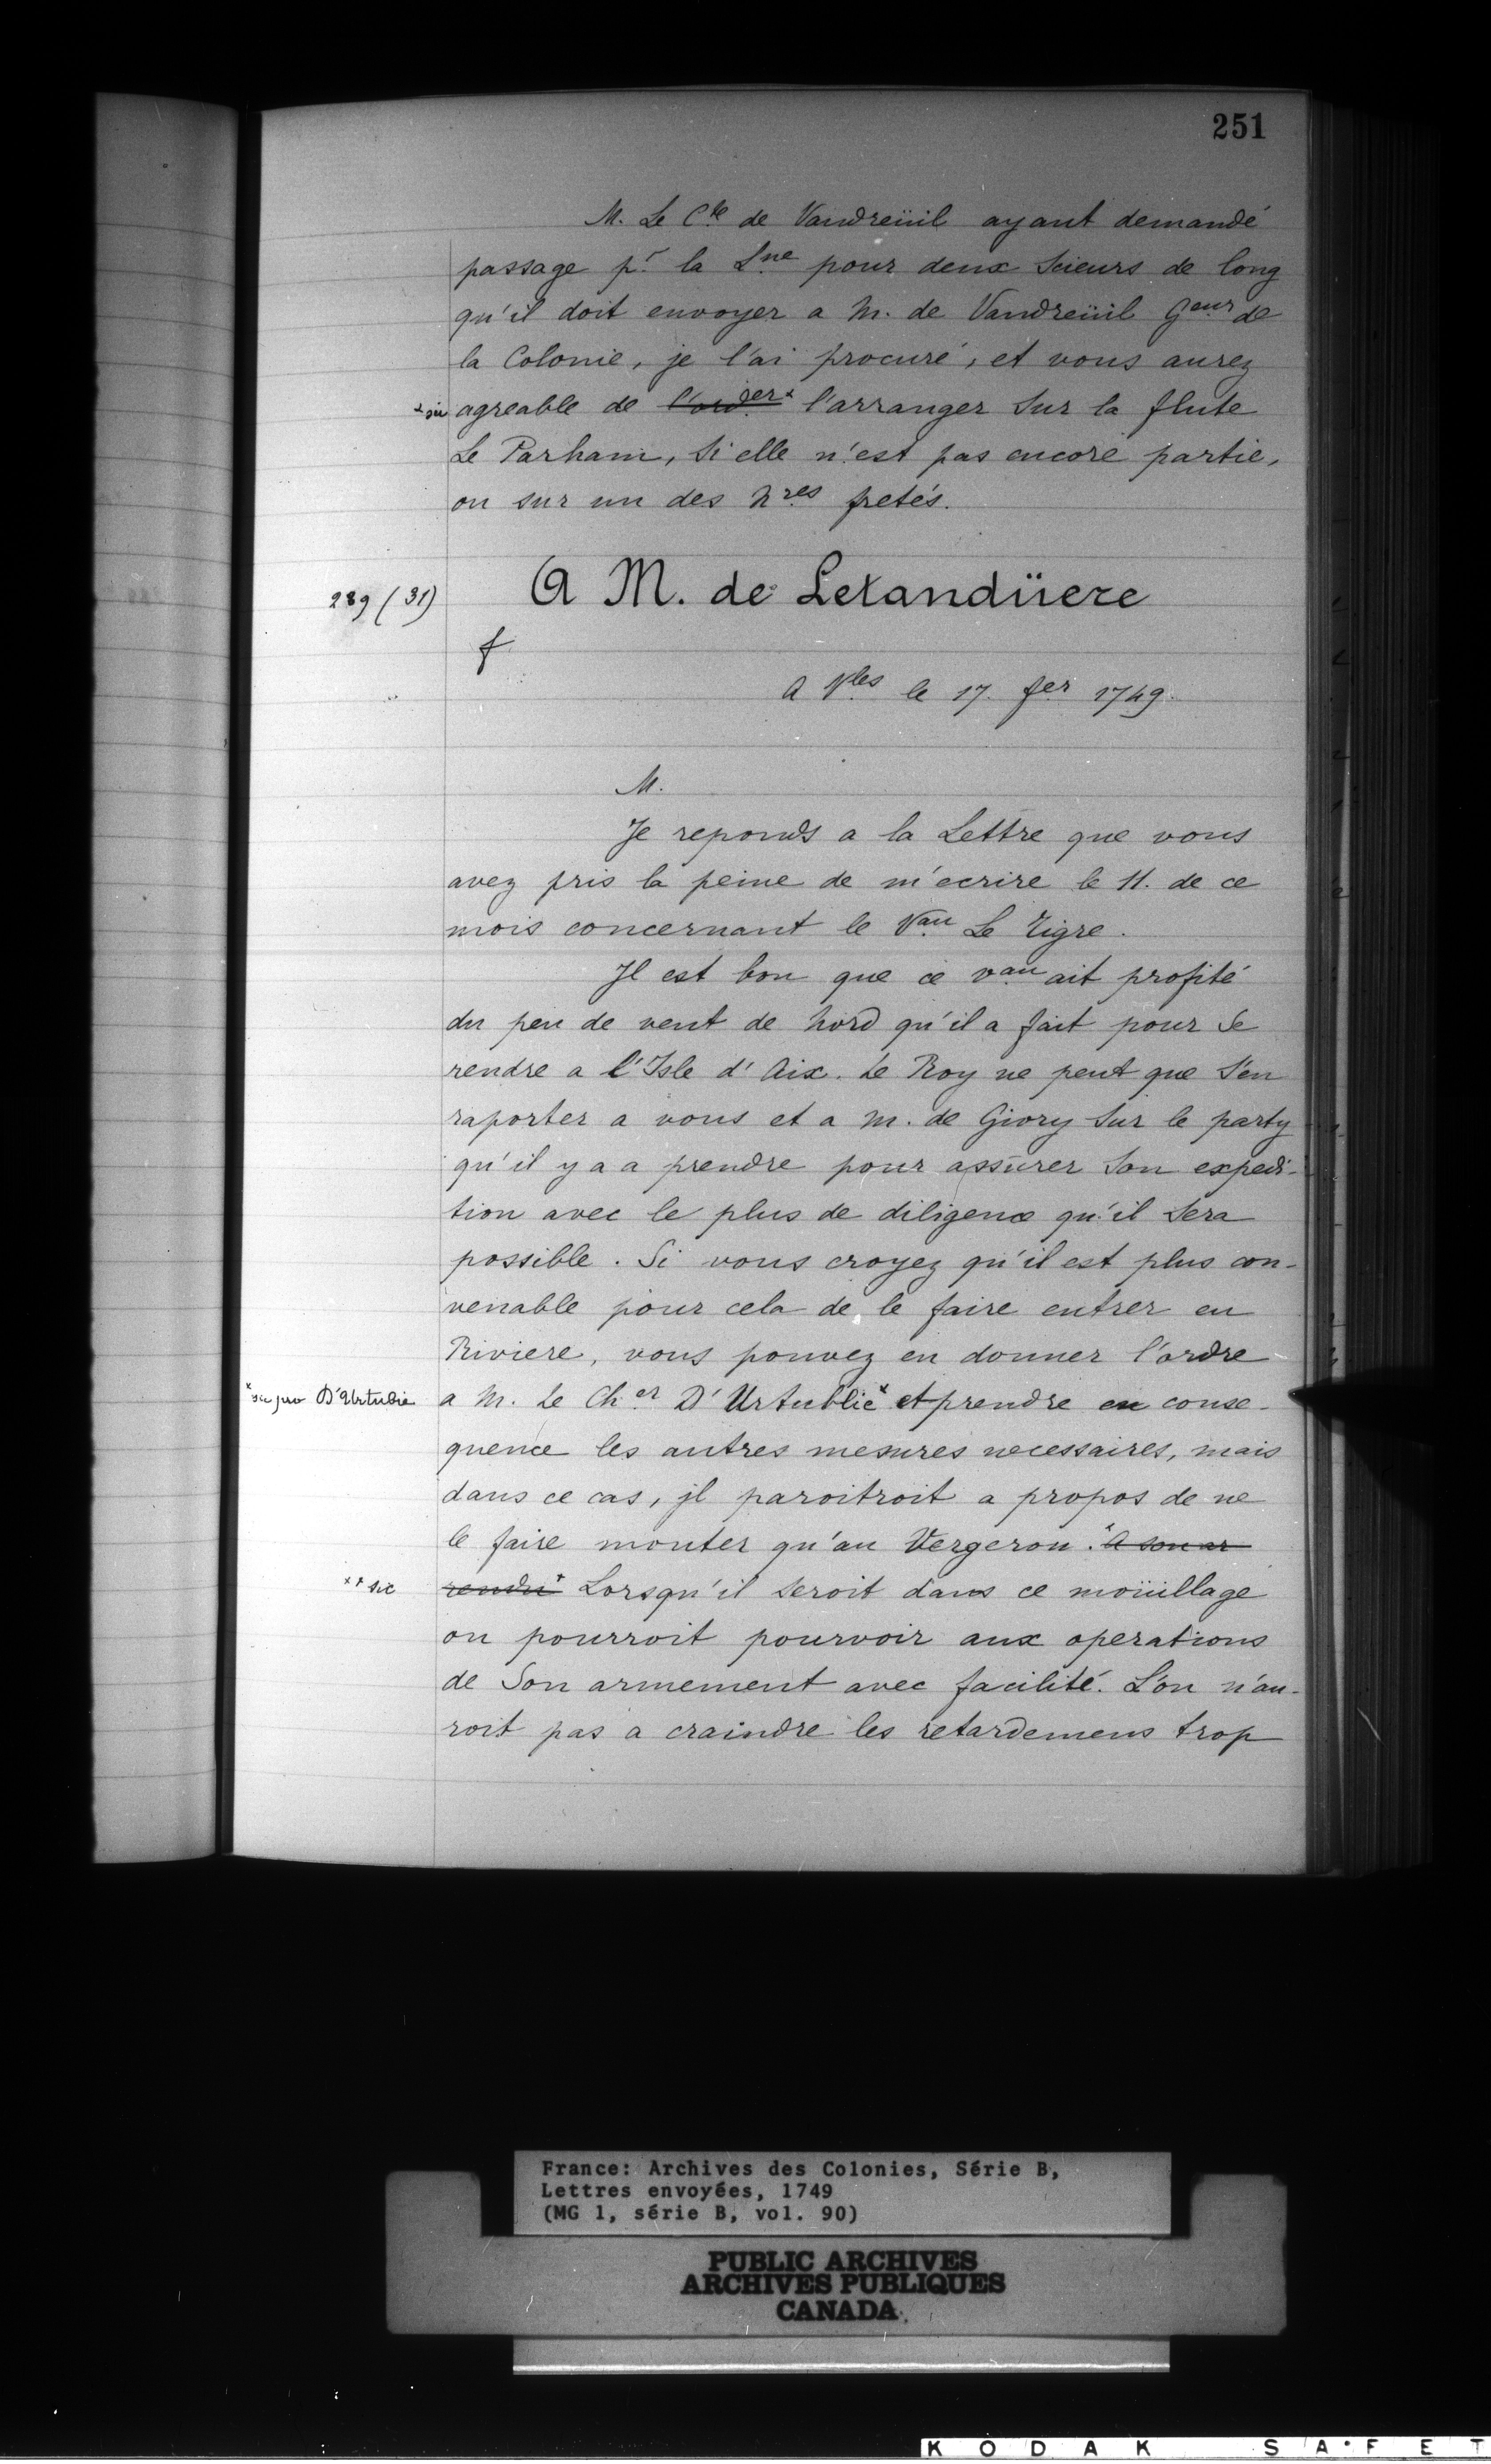 251
M. Le Cte de Vaudreüil ayant demandé
passage pr la Lne pour deux Scieurs de long
qu'il doit envoyer a M. de Vaudreüil Geur de
la Colonie, je l'ai procuré, et vous aurez
agreable de l'arranger Sur la flute
Le Parham, Si elle n'est pas encore partie,
ou sur un des Nres fretés.
289 (31) A M. de Letandüere
f
A Vles le 17. fer 1749.
M.
Je reponds a la Lettre que vous
avez pris la peine de m'ecrire le 11. de ce
mois concernant le Vau Le Tigre.
Jl est bon que ce vau ait profité
du peu de vent de Nord qu'il a fait pour Se
rendre a l'Isle d'Aix. Le Roy ne peut que S'en
raporter a vous et a M. de Givry Sur le party
qu'il y a a prendre pour assurer Son expedi-
tion avec le plus de diligence qu'il Sera
possible. Si vous croyez qu'il est plus con-
venable pour cela de le faire entrer en
Riviere, vous pouvez en donner l'ordre
* sic pro D'Urtubie a M. Le Cher D'Urtublie* et prendre en conse-
quence les autres mesures necessaires, mais
dans ce cas, jl paroitroit a propos de ne
le faire monter qu'au Vergeron. * A son ar
** sic rendu* Lorsqu'il Seroit dans ce moüillage
on pourroit pourvoir aux operations
de Son armement avec facilité. L'on n'au-
roit pas a craindre les retardemens trop
France: Archives des Colonies, Série B,
Lettres envoyées, 1749
(MG 1, série B, vol. 90)
PUBLIC ARCHIVES
ARCHIVES PUBLIQUES
CANADA
KODAK SAFET